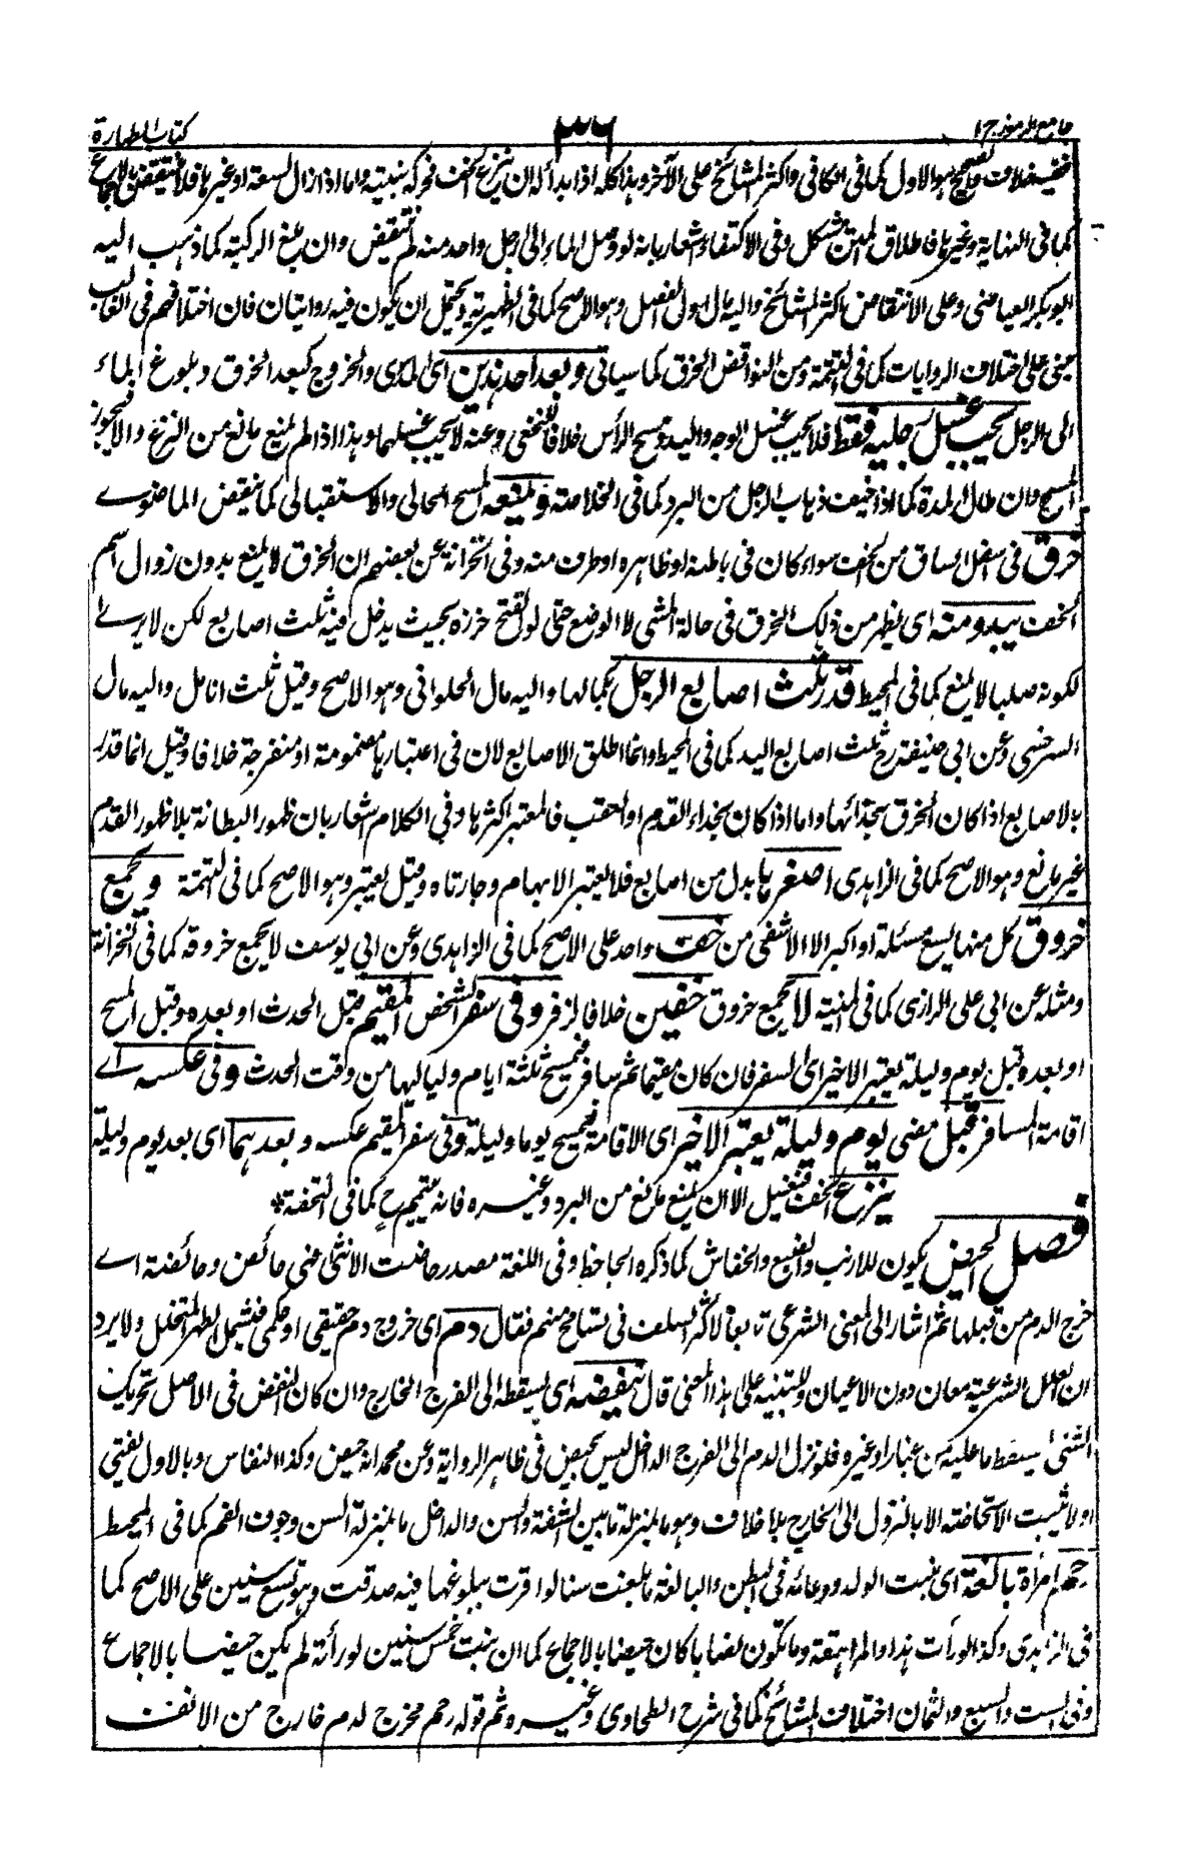 جامع الرموز ج ۱
۳۶
كتاب الطهارة
ففيه خلاف والصحيح هو الاول كما فى الكافى واكثر المشائخ على الآخر وهذا كله اذا بدأ له ان ينزع الخف فحركه بنيته واما اذا زال لسعته او غيرها فلا ينتقض بالاجماع
كما فى النهاية وغيرها فاطلاق المتن مشكل وفى الاكتفاء اشعار بانه لو وصل الماء الى رجل واحد منه لم تنتقض وان بلغ الركبة كما ذهب اليه
ابو بكر العياضى وعلى الانتقاض اكثر المشائخ واليه مال ابو الفضل وهو الاصح كما فى الظهيرية ويحتمل ان يكون فيه روايتان فان اختلافهم فى الغالب
مبنى على اختلاف الروايات كما فى التتمة ومن النواقض الخرق كما سياتى وبعد احد هذين اى المدى والخروج كبعد الخرق وبلوغ الماء
الى الرجل يجب غسل رجليه فقط فلا يجب غسل الوجه واليد ومسح الرأس خلافا للنخعى وعنه لا يجب غسلهما وهذا اذا لم يمنع مانع من النزع والا يجوز
المسح وان طال المدة كما اذا خيف ذهاب الرجل من البرد كما فى الخلاصة ويمنعه المسح الحالى والاستقبالى كما ينقض الماضوے
خرق فى اسفل الساق من الخف سواء كان فى باطنه او ظاهره او طرف منه وفى الخزانة عن بعضهم ان الخرق لا يمنع بدون زوال اسم
الخف يبدو منه اى يظهر من ذلك الخرق فى حالة المشى لا الوضع حتى لو انفتح خرزه بحيث يدخل فيه ثلث اصابع لكن لا يرے
لكونه صلبا لا يمنع كما فى المحيط قدر ثلث اصابع الرجل بكمالها واليه مال الحلوانى وهو الاصح وقيل ثلث انامل واليه مال
السرخسى وعن ابى حنيفة رح ثلث اصابع اليد كما فى المحيط وانما اطلق الاصابع لان فى اعتبارها مضمومة او منفرجة خلافا وقيل انما قدر
بالاصابع اذا كان الخرق بحذائها واما اذا كان بحذاء القدم او العقب فالمعتبر اكثرها وفى الكلام اشعار بان ظهور البطانة بلا ظهور القدم
غير مانع وهو الاصح كما فى الزاهدى اصغرها بدل من اصابع فلا يعتبر الابهام وجارتاه وقيل يعتبر وهو الاصح كما فى التتمة ويجمع
خروق كل منها يسع مسئلة او اكبر لا الاشفى من خف واحد على الاصح كما فى الزاهدى وعن ابى يوسف لا يجمع خروقه كما فى الخزانة
ومثله عن ابى على الرازى كما فى المنية لا يجمع خروق خفين خلافا لزفر وفى سفر الشخص المقيم قبل الحدث او بعده وقبل المسح
او بعده قبل يوم وليلة يعتبر الاخير اى السفر فان كان مقيما ثم سافر فيمسح ثلثة ايام ولياليها من وقت الحدث وفى عكسه اے
اقامة المسافر قبل مضى يوم وليلة يعتبر الاخير اى الاقامة فيمسح يوما وليلة وفى سفر المقيم عكسه وبعدهما اى بعد يوم وليلة
ينزع الخف فيغسل الا ان يمنع مانع من البرد وغيره فانه يتيمم ح كما فى التحفة
فصل الحيض يكون للارنب والضبع والخفاش كما ذكره الجاحظ وفى اللغة مصدر حاضت الانثى فهى حائض وحائضة اے
خرج الدم من قبلها ثم اشار الى المعنى الشرعى تابعا لاكثر السلف فى تسامح منهم فقال دم اى خروج دم حقيقى او حكمى فيشمل الطهر المتخلل ولا يرد
ان العلل الشرعية معان دون الاعيان وللتنبيه على هذا المعنى قال ينفضه اى يسقطه الى الفرج الخارج وان كان النفض فى الاصل تحريك
الشئ ليسقط ما عليه من غبار او غيره فلو نزل الدم الى الفرج الداخل ليس بحيض فى ظاهر الرواية وعن محمد انه حيض وكذا النفاس وبالاول يفتى
ولا يثبت الاستحاضة الا بالنزول الى الخارج بلا خلاف وهو بمنزلة ما بين الشفة والسن والداخل بمنزلة ما بين السن وجوف الفم كما فى المحيط
رحم امرأة بالغة اى منبت الولد ووعائه فى البطن والبالغة ما بلغت سنا لو اقرت ببلوغها فيه صدقت وهو تسع سنين على الاصح كما
فى الزاهدى وكذا لو رأت هذا والمراهقة وما تكون نصابا كان حيضا بالاجماع كما ان بنت خمس سنين لو رأته لم يكن حيضا بالاجماع
وفى الست والسبع والثمان اختلاف المشائخ كما فى شرح الطحاوى وغيره ثم قوله رحم مخرج لدم خارج من الانف